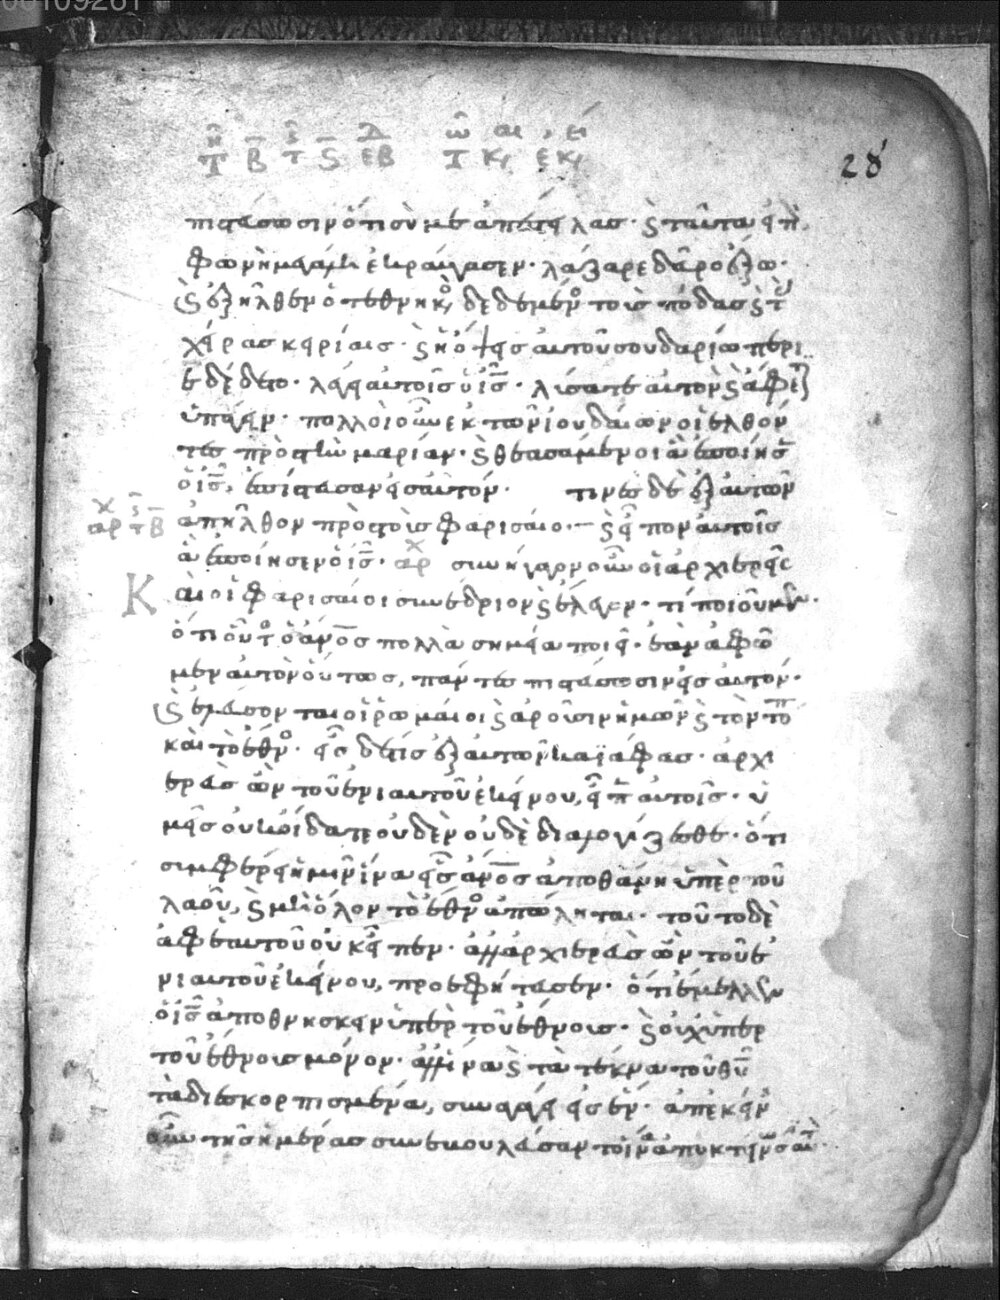 πιστεύσωσιν ὅτι σύ με ἀπέστειλας· καὶ ταῦτα εἰπὼν
φωνῇ μεγάλη ἐκραύγασεν· λάζαρε δεῦρο ἔξω·
καὶ ἐξῆλθεν ὁ τεθνηκώς, δεδεμένος τοὺς πόδας καὶ τὰς
χεῖρας κειρίαις· καὶ ἡ ὄψις αὐτοῦ σουδαρίω περι
εδέδετο· λέγει αὐτοῖς ὁ ις· λύσατε αὐτὸν καὶ ἄφετε
ὑπάγειν· πολλοὶ οὖν ἐκ τῶν ἰουδαίων οἱ ἐλθόν
τες πρὸς τὴν μαρίαν· καὶ θεασάμενοι ἃ ἐποίησεν
ὁ ις, ἐπίστευσαν εἰς αὐτόν· τινὲς δὲ ἐξ αὐτῶν
ἀπῆλθον πρὸς τοὺς φαρισαίους καὶ εἶπον αὐτοῖς
ἃ ἐποίησεν ὁ ις· αρχ συνήγαγον οὖν οἱ ἀρχιερεῖς
Καὶ οἱ φαρισαῖοι συνέδριον καὶ ἔλεγον· τί ποιοῦμεν·
ὅτι οὗτος ὁ ανος πολλὰ σημεῖα ποιεῖ· ἐὰν ἀφῶ
μεν αὐτὸν οὕτως, πάντες πιστεύσωσιν εἰς αὐτόν·
καὶ ἐλεύσονται οἱ ῥωμαῖοι καὶ ἀροῦσιν ἡμῶν καὶ τὸν τόπον
καὶ τὸ ἔθνος· εἷς δέ τις ἐξ αὐτῶν καϊάφας· ἀρχι
ερεὺς ὢν τοῦ ἐνιαυτοῦ ἐκείνου, εἶπεν αὐτοῖς· ὑ
μεῖς οὐκ οἴδατε οὐδὲν οὐδὲ διαλογίζεσθε· ὅτι
συμφέρει ἡμῖν ἵνα εἷς ανος ἀποθάνη ὑπὲρ τοῦ
λαοῦ, καὶ μὴ ὅλον τὸ ἔθνος ἀπόληται· τοῦτο δὲ
ἀφ ἑαυτοῦ οὐκ εἶπεν· ἀλλ ἀρχιερεὺς ὢν τοῦ ἐ
νιαυτοῦ ἐκείνου, προεφήτευσεν· ὅτι ἔμελλεν
ὁ ις ἀποθνήσκειν ὑπὲρ τοῦ ἔθνους· καὶ οὐχ ὑπὲρ
τοῦ ἔθνους μόνον· ἀλλ ἵνα καὶ τὰ τέκνα τοῦ θυ
τὰ διεσκορπισμένα, συναγάγη εἰς ἕν· ἀπ ἐκείνης
οὖν τῆς ἡμέρας συνεβουλεύσαντο ἵνα ἀποκτείνωσιν αὐτόν·